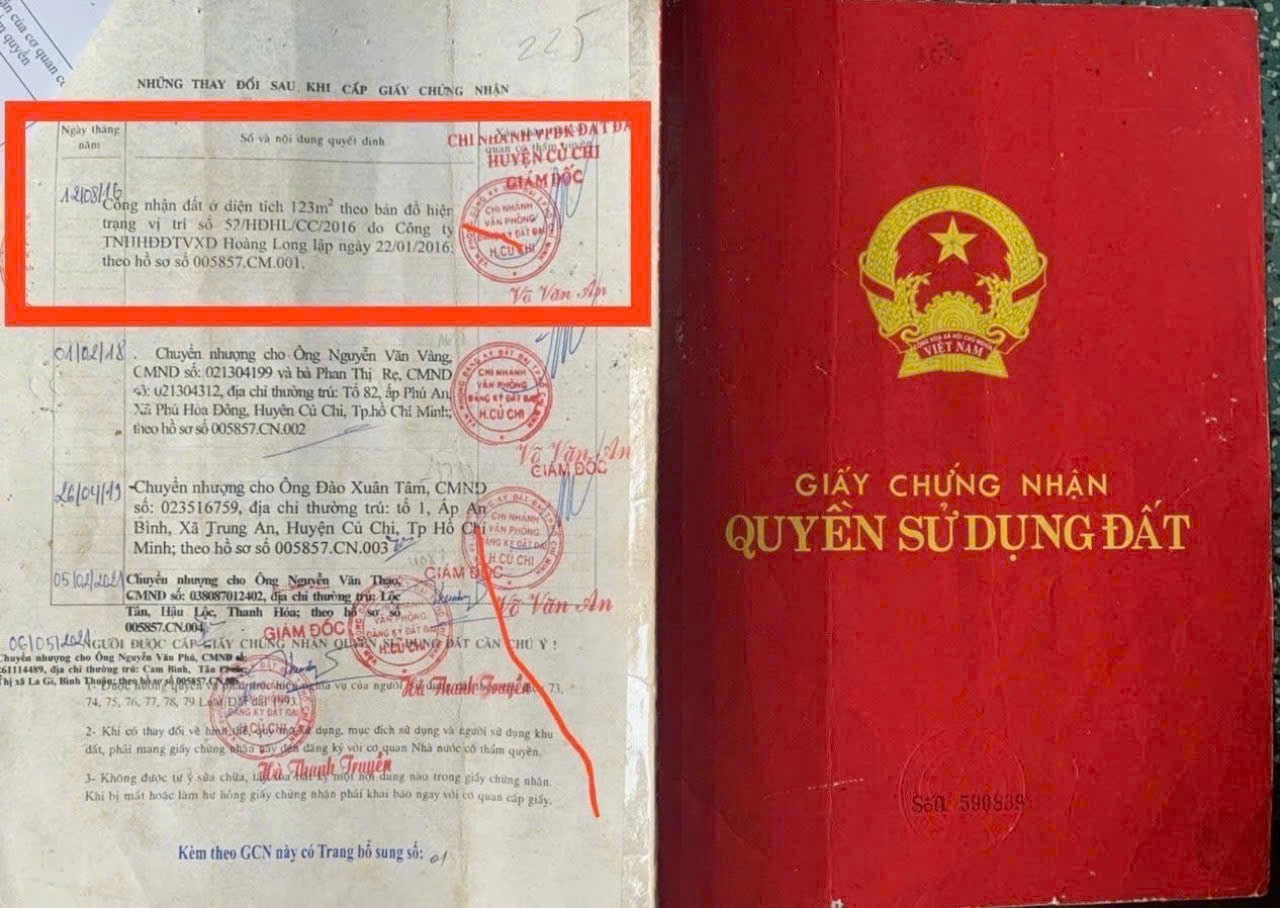 225
NHỮNG THAY ĐỔI SAU KHI CẤP GIẤY CHỨNG NHẬN
Ngày tháng năm
Số và nội dung quyết định
CHI NHÁNH VPĐK ĐẤT ĐA
HUYỆN CỦ CHI
GIÁM ĐỐC
12/08/16
Công nhận đất ở diện tích 123m² theo bản đồ hiện
trạng vị trí số 52/HĐHL/CC/2016 do Công ty
TNHHĐĐTVXD Hoàng Long lập ngày 22/01/2016;
theo hồ sơ số 005857.CM.001.
CHI NHÁNH
VĂN PHÒNG
ĐĂNG KÝ ĐẤT ĐAI
H.CỦ CHI
Võ Văn An
01/02/18
. Chuyển nhượng cho Ông Nguyễn Văn Vàng,
CMND số: 021304199 và bà Phan Thị Rẹ, CMND
số: 021304312, địa chỉ thường trú: Tổ 82, ấp Phú An,
Xã Phú Hòa Đông, Huyện Củ Chi, Tp.hồ Chí Minh;
theo hồ sơ số 005857.CN.002
CHI NHÁNH
VĂN PHÒNG
ĐĂNG KÝ ĐẤT ĐAI
H.CỦ CHI
Võ Văn An
GIÁM ĐỐC
26/04/19
-Chuyển nhượng cho Ông Đào Xuân Tâm, CMND
số: 023516759, địa chỉ thường trú: tổ 1, Ấp An
Bình, Xã Trung An, Huyện Củ Chi, Tp Hồ Chí
Minh; theo hồ sơ số 005857.CN.003
CHI NHÁNH
VĂN PHÒNG
ĐĂNG KÝ ĐẤT ĐAI
H.CỦ CHI
GIÁM ĐỐC
Võ Văn An
05/02/2021
Chuyển nhượng cho Ông Nguyễn Văn Thao,
CMND số: 038087012402, địa chỉ thường trú: Lộc
Tân, Hậu Lộc, Thanh Hóa; theo hồ sơ số
005857.CN.004
CHI NHÁNH
VĂN PHÒNG
ĐĂNG KÝ ĐẤT ĐAI
H.CỦ CHI
GIÁM ĐỐC
Hà Thanh Truyền
06/05/2021
NGƯỜI ĐƯỢC CẤP GIẤY CHỨNG NHẬN QUYỀN SỬ DỤNG ĐẤT CẦN CHÚ Ý !
Chuyển nhượng cho Ông Nguyễn Văn Phú, CMND số:
261114489, địa chỉ thường trú: Cam Bình, Tân
Thị xã La Gi, Bình Thuận; theo hồ sơ số 005857.CN.005
1- Được hưởng quyền và phải thực hiện nghĩa vụ của người sử dụng 73,
74, 75, 76, 77, 78, 79 Luật Đất đai 1993.
2- Khi có thay đổi về hình thể, quy mô sử dụng, mục đích sử dụng và người sử dụng khu
đất, phải mang giấy chứng nhận này đến đăng ký với cơ quan Nhà nước có thẩm quyền.
ĐĂNG KÝ ĐẤT ĐAI
H.CỦ CHI
Hà Thanh Truyền
3- Không được tự ý sửa chữa, tẩy xóa bất kỳ một nội dung nào trong giấy chứng nhận.
Khi bị mất hoặc làm hư hỏng giấy chứng nhận phải khai báo ngay với cơ quan cấp giấy.
Kèm theo GCN này có Trang bổ sung số: 01
CỘNG HÒA XÃ HỘI CHỦ NGHĨA
VIỆT NAM
GIẤY CHỨNG NHẬN
QUYỀN SỬ DỤNG ĐẤT
590839